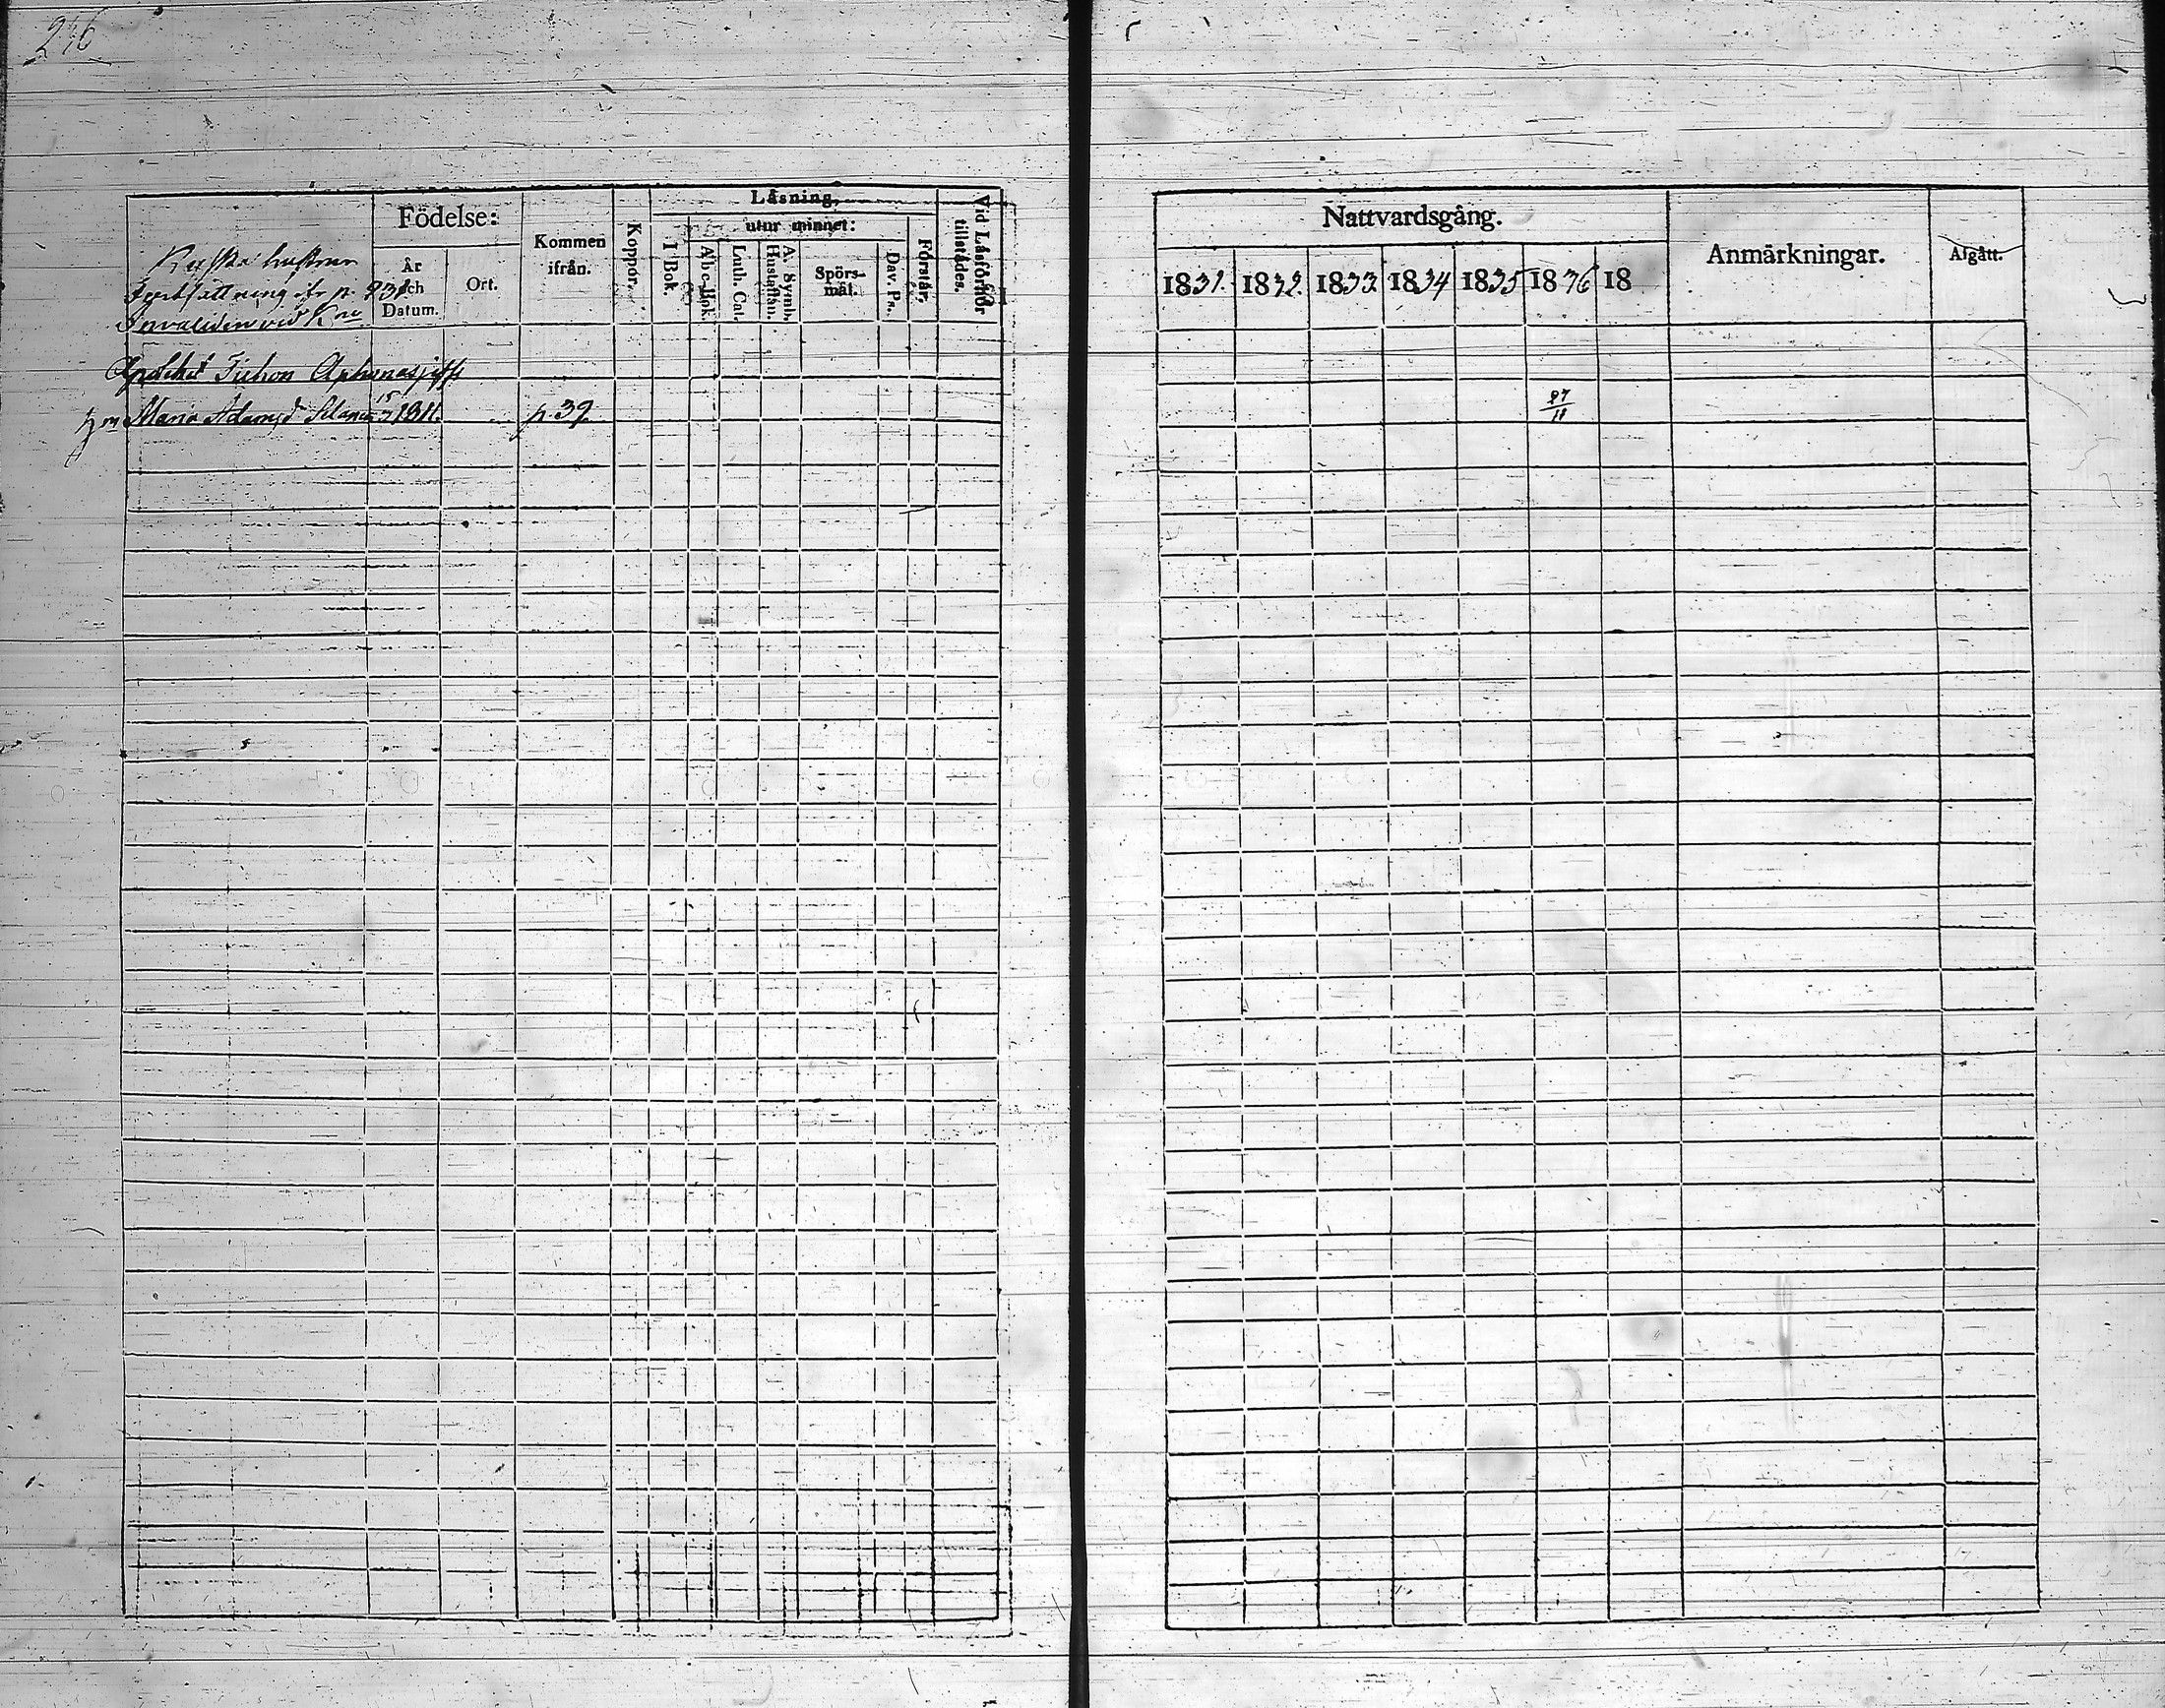 246
Ryska hustrur
Fortsättning ifr. p. 231
Invaliden vid
Födelse:
År och Datum.
Ort.
Kommen ifrån.
Koppor.
Låsning,
utur minnet:
I Bok.
Abc-Bok.
Luth. Cat.
A. Symb. Hustaflan.
Spörsmål.
Dav. Ps.
Förstår,
Vid Låsförhör tillstådes.
Tichon Aphanasjeffs
Maria Adamsd 15/7 1811. p. 39.
Nattvardsgång.
1831. 1832. 1833 1834 1835 1836 18
Anmärkningar.
Afgått.
27/11